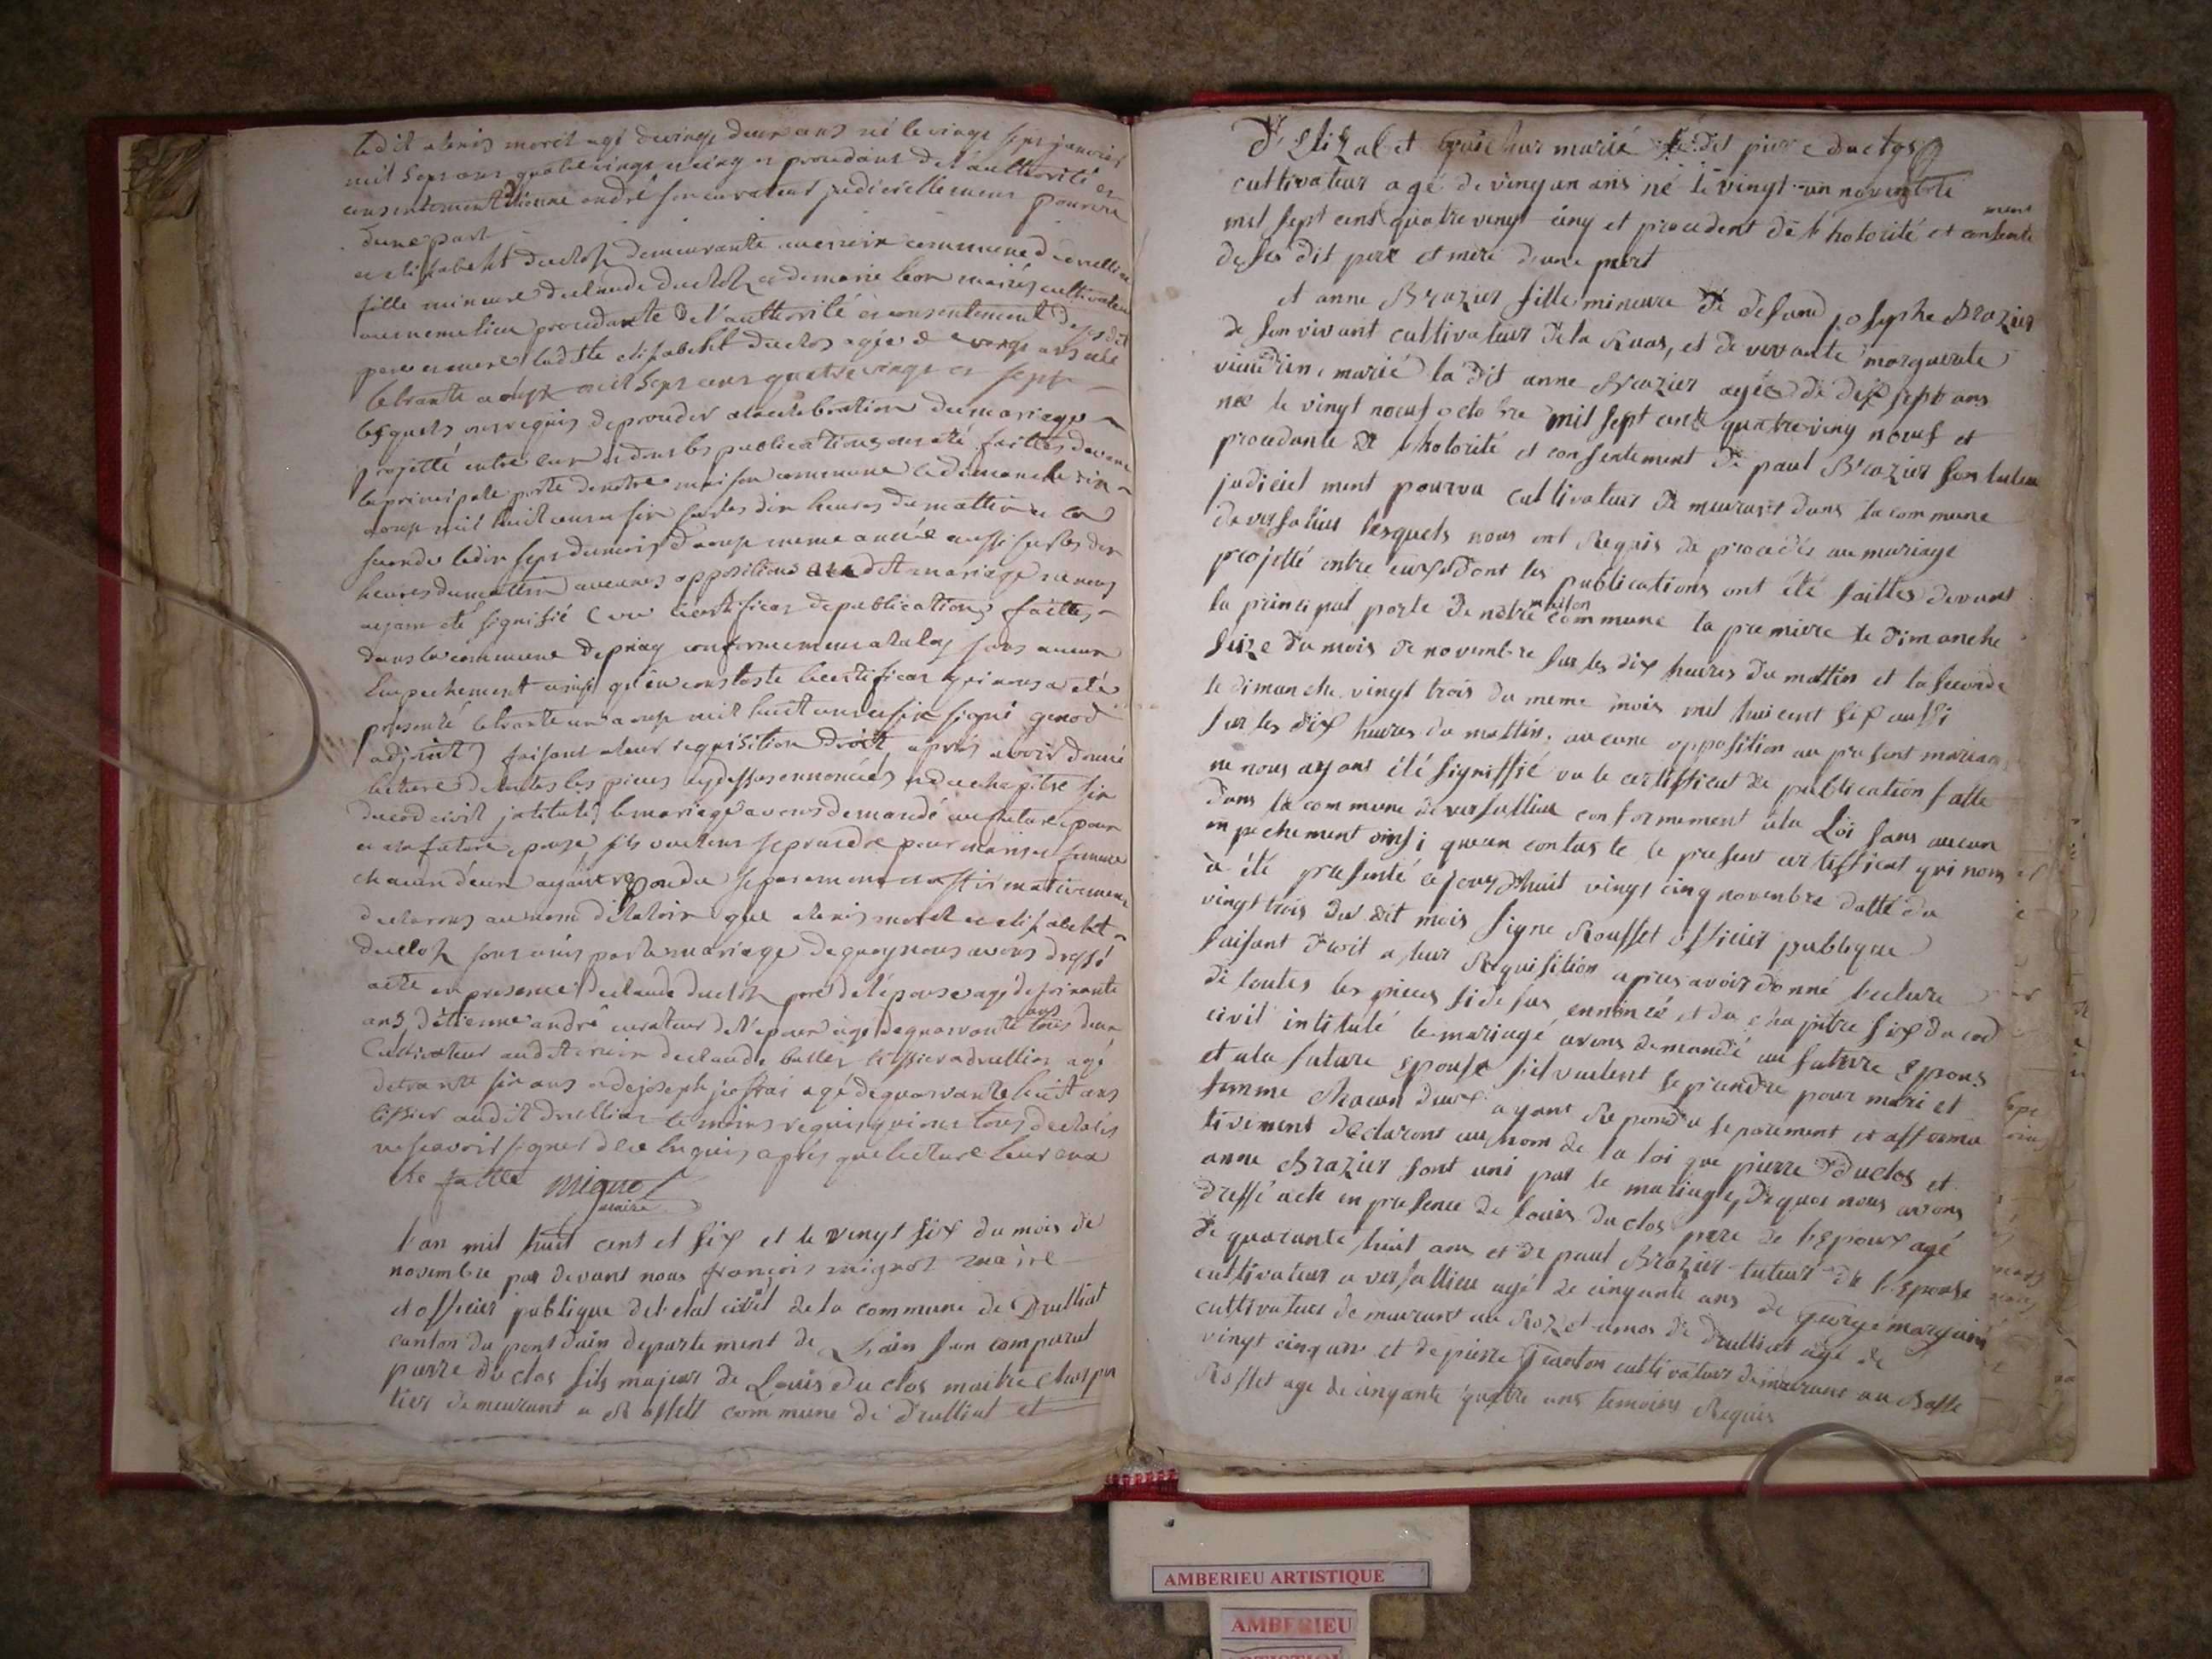 ledit alexis morel agé de vingt deux ans né le vingt sept janvier
mil sept cens quatre vingt et cinq et procedant de l'authorité et
consentement d'étienne andré son curateur judiciellement pourvu
d'une part
et elisabeht duclos demeurante commune de druilliat
fille mineure de claude duclos et de marie leon mariés cultivateurs
au meme lieu procedante de l'authorité et consentement de ses dit
pere et mere ladite elisabeht duclos agée de vingt ans née
le trante aoust mil sept cens quatre vingt et sept
lesquels ons requis de proceder a la celebration du mariage
projetté entre eux et dons les publications ons été faittes devant
la principale porte de notre maison commune le dimanche dix
aoust mil huit cens et six sur les dix heures du mattin et la
seconde le dix sept du mois d'aoust meme année aussi sur les dix
heures du mattin aucunes oppositions audit mariage ne nous
ayant été signifié vu le certificat de publications faittes
dans la commune de priay conformement a la loy sans aucun
empechement ainsi qu'en constaste le certificat qui nous a été
presenté le trante un aoust mil huit cens et six signé genod
adjoint faisant a leur requisition droit, apres avoir donné
lecture de toutes les pieces cy dessus ennoncées et du chapitre six
du cod civil intitulé le mariage avons demandé au future epoux
et a la future epouse s'ils veulent se prendre pour mari et femme
chacun d'eux ayant repondu separement et affirmativement
declarons au nom de la loix que alexis morel et elisabeht
duclos sont unis par le mariage de quoy nous avons dressé
acte en presence de claude duclos pere de l'épouse agé de soixante
ans, d'étienne andré curateur de l'epoux agé de quarante trois ans
cultivateur audit de claude tissier a druillia agé
de trante six ans et de joseph agé de quarante huit ans
tissier audit druilliat temoins requis qui ont tous declarés
ne scavoir signer de ce enquis après que lecture leur en a
été faitte mignot
maire
l'an mil huit cent et six et le vingt six du mois de
novembre par devant nous françois mignot maire
et officier publique de l'etat civil de la commune de Druilliat
canton du pont d'ain departement de L'ain son comparut
pierre duclos fils majeur de Louis duclos maitre charpen
tier demeurant a Rossett commune de druilliat et
d'Elizabet marié le dit pierre duclos
cultivateur agé de vingt un ans né le vingt un novembre
mil sept cent quatre vingt cinq et procedent de l'hotorité et consente
ment
de ses dit pere et mere d'une part
et anne Brazier fille mineure de defund josephe Brazier
de son vivant cultivateur de la Ruas, et de vivante marguerite
marié la dit anne Brazier agée de dix sept ans
née le vingt noeuf octobre mil sept cent quatre ving nouf et
procedante de l'hotorité et consentement de paul Brazier son tuteur
judiciel ment pourvu cultivateur demeurant dans la commune
de versalieu lesquels nous ont Requis de procéder au mariage
projetté entre eux et dont les publications ont été faittes devant
la principal porte de notre maison commune la premiere le dimanche
seize du mois de novembre sur les dix heures du mattin et la seconde
le dimanche vingt trois du meme mois mil huit cent six aussi
sur les dix heures du mattin, aucune opposition au present mariage
ne nous ayant été signiffié vu le certifficat de publication faitte
dans la commune de versallieu conformement a la Loi sans aucun
enpechement ainsi qu'en contaste le present certifficat qui nous
a été presenté ce jourd'huit vingt cinq novembre datté du
vingt trois du dit mois signe Rousset officier publique
faisant droit a leur Requisition apres avoir donné lecture
de toutes les pieces si desus ennoncé et du chapitre six du cod
civil intitulé le mariagé avons demandé au future Epous
et a la future Epouse s'il veulent se prendre pour mari et
femme chacun deux ayant Repondu separement et afferma
tivement declaront au nom de la loi que pierre duclos et
anne Brazier sont uni par le mariage, de quoi nous avons
dressé acte en presence de Louis duclos pere de l'Epoux agé
de quarante huit ans et de paul Brazier tuteur de l'Epouse
cultivateur a versallieu agé de cinquante ans de George
cultivateur demeurant au de druilliat agé de
vingt cinq ans et de pierre cultivateur demeurant au
Rosset agé de cinquante quattre ans temoins Requis
AMBERIEU ARTISTIQUE
AMBERIEU